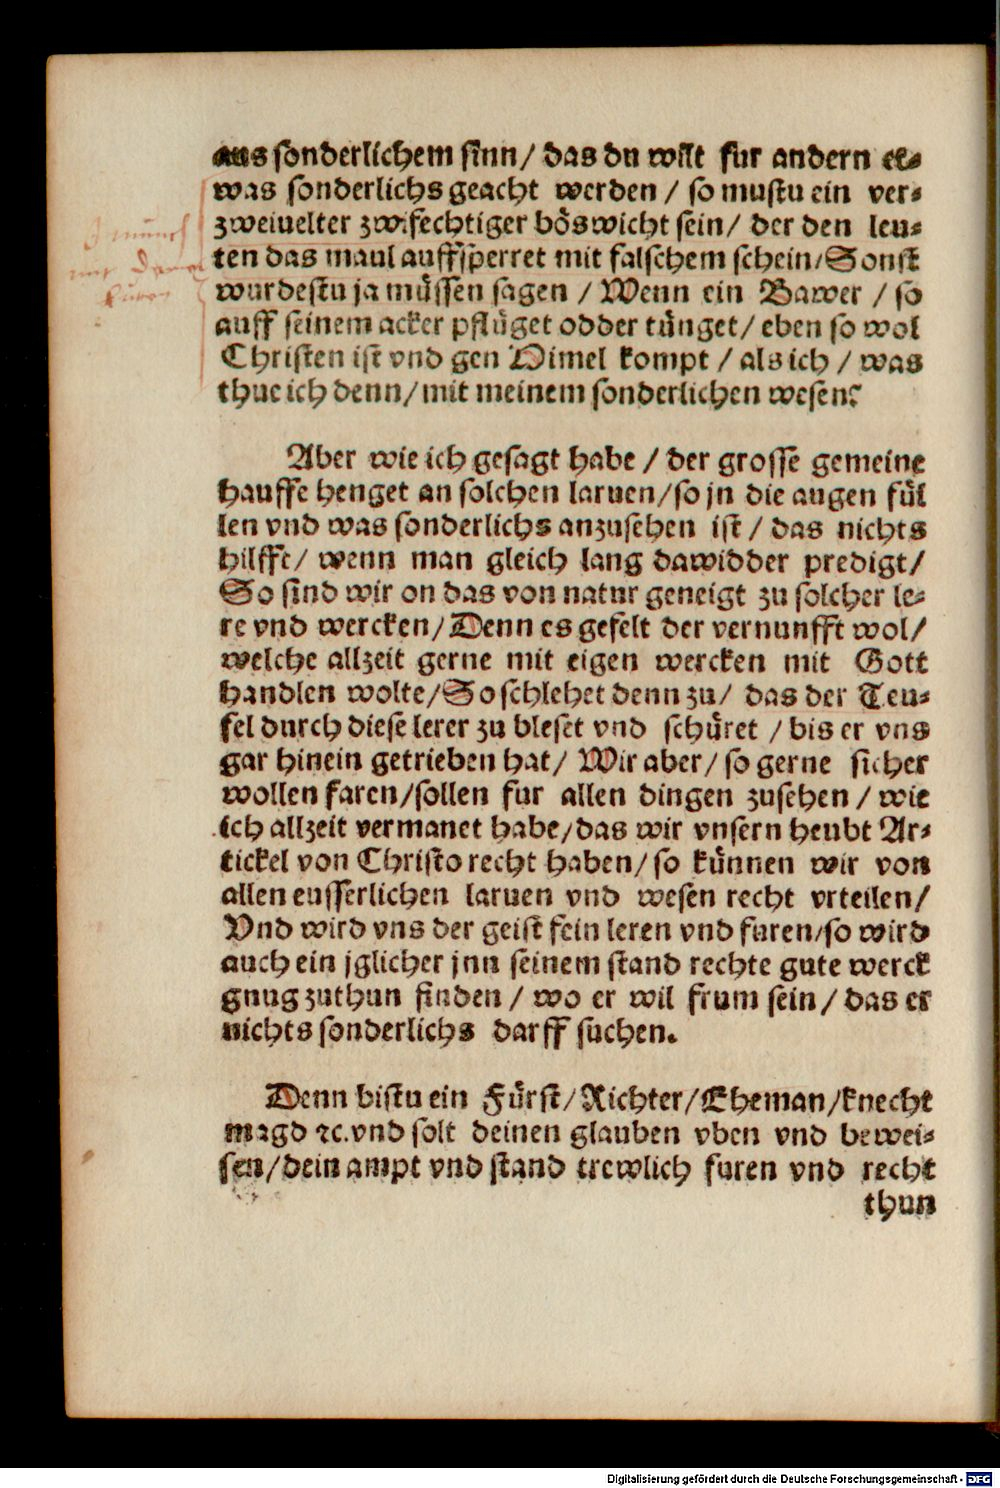 aus sonderlichem sinn/ das du wilt fur andern et-
was sonderlichs geacht werden / so mustu ein ver-
zweiuelter zwifechtiger böswicht sein/ der den leu-
ten das maul auffsperret mit falschem schein/Sonst
wurdestu ja müssen sagen / Wenn ein Bawer / so
auff seinem acker pflüget odder tünget/ eben so wol
Christen ist vnd gen Himel kompt / als ich / was
thue ich denn/ mit meinem sonderlichen wesen?
Aber wie ich gesagt habe / der grosse gemeine
hauffe henget an solchen laruen/so jn die augen fül
len vnd was sonderlichs anzusehen ist / das nichts
hilfft/ wenn man gleich lang dawidder predigt/
So sind wir on das von natur geneigt zu solcher le-
re vnd wercken/Denn es gefelt der vernunfft wol/
welche allzeit gerne mit eigen wercken mit Gott
handlen wolte/So schlehet denn zu/ das der Teu-
fel durch diese lerer zu bleset vnd schüret / bis er vns
gar hinein getrieben hat/ Wir aber/ so gerne sicher
wollen faren/sollen fur allen dingen zusehen / wie
ich allzeit vermanet habe/das wir vnsern heubt Ar-
tickel von Christo recht haben/ so künnen wir von
allen eusserlichen laruen vnd wesen recht vrteilen/
Vnd wird vns der geist fein leren vnd furen/so wird
auch ein jglicher jnn seinem stand rechte gute werck
gnug zuthun finden / wo er wil frum sein/ das er
nichts sonderlichs darff suchen.
Denn bistu ein Fürst/Richter/Eheman/knecht
magd ꝛc.vnd solt deinen glauben vben vnd bewei-
sen/dein ampt vnd stand trewlich furen vnd recht
thun
Digitalisierung gefördert durch die Deutsche Forschungsgemeinschaft - DFG